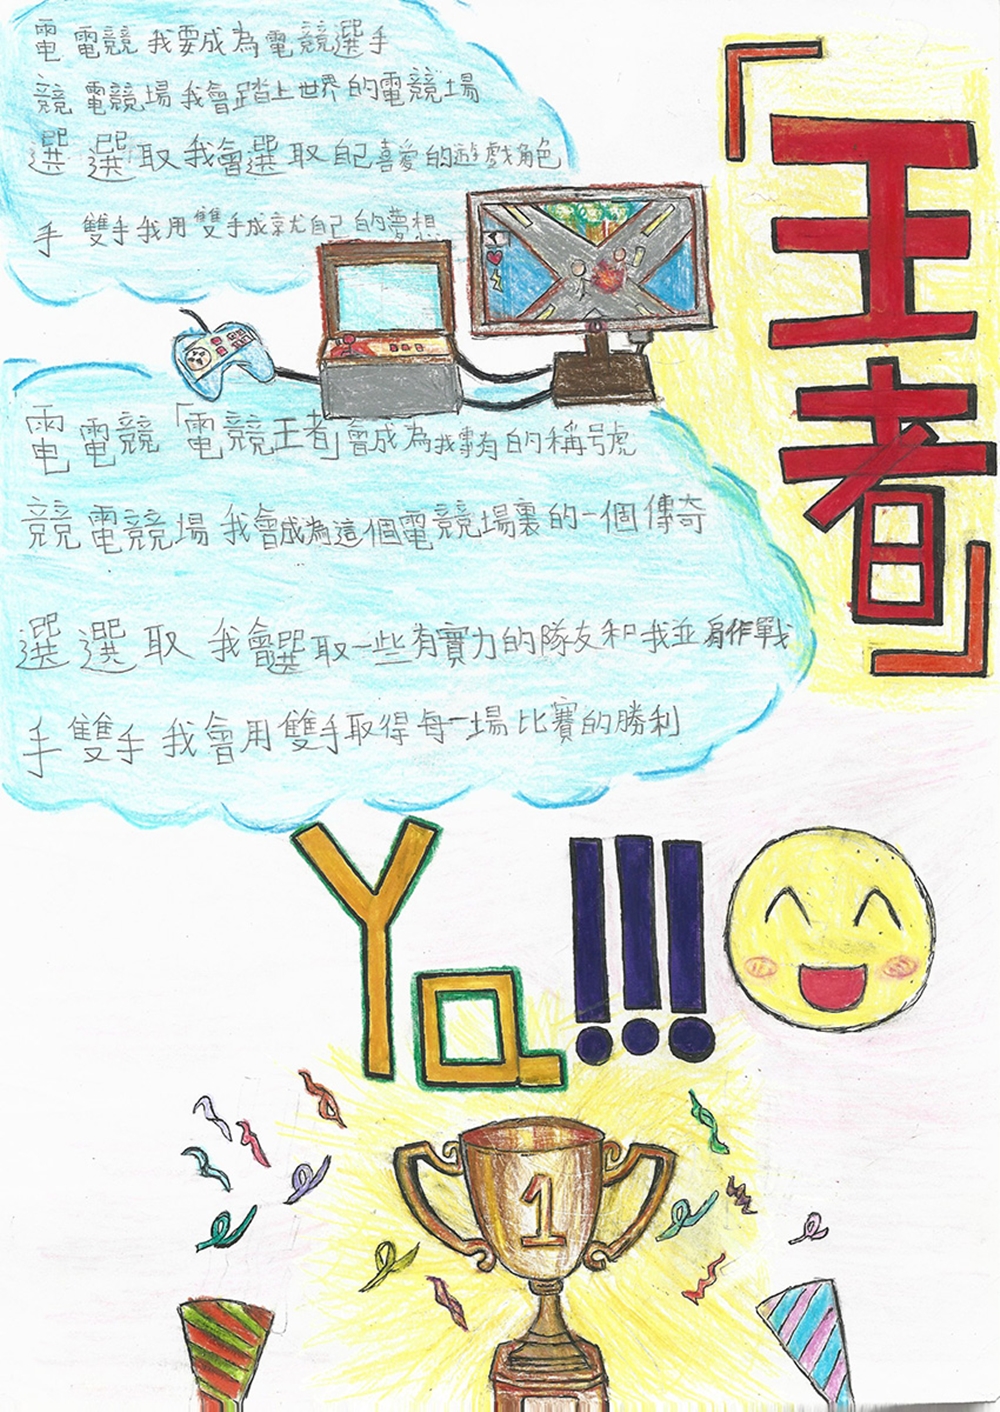 電 電競 我要成為電競選手
競 電競場 我會踏上世界的電競場
選 選取 我會選取自己喜愛的遊戲角色
手 雙手 我用雙手成就自己的夢想
「王者」
電 電競「電競王者」會成為我專有的稱号虎
競 電競場 我會成為這個電競場裏的一個傳奇
選 選取 我會選取一些有實力的隊友和我並肩作戰
手 雙手 我會用雙手取得每一場比賽的勝利
Ya!!!
1